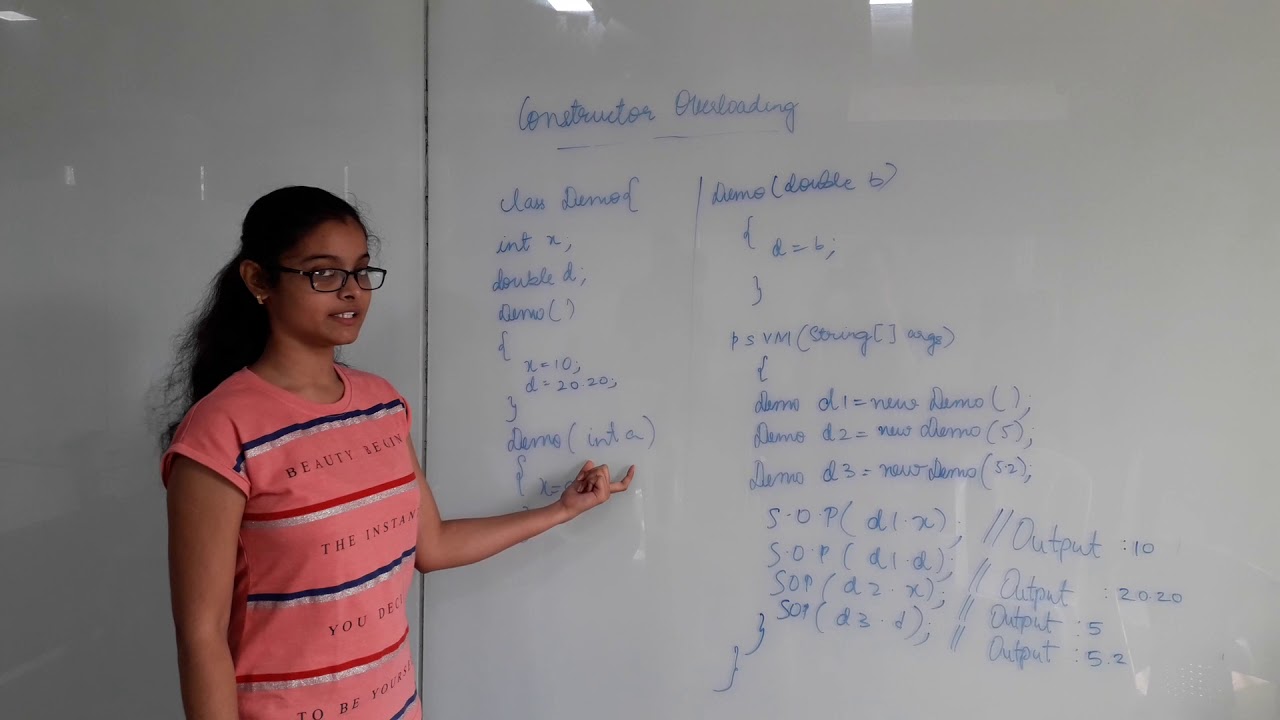 Constructor Overloading
class Demo{
int x;
double d;
Demo()
{
x=10;
d=20.20;
}
Demo(int a)
{
x=
Demo(double b)
{
d=b;
}
PSVM(String[] args)
{
Demo d1=new Demo();
Demo d2=new Demo(5);
Demo d3=new Demo(5.2);
S.O.P(d1.x); //Output :10
S.O.P(d1.d); // Output :20.20
SOP(d2.x); // Output :5
SOP(d3.d); // Output :5.2
}
}
BEAUTY BEGIN
THE INSTAN
YOU DECI
TO BE YOURSE